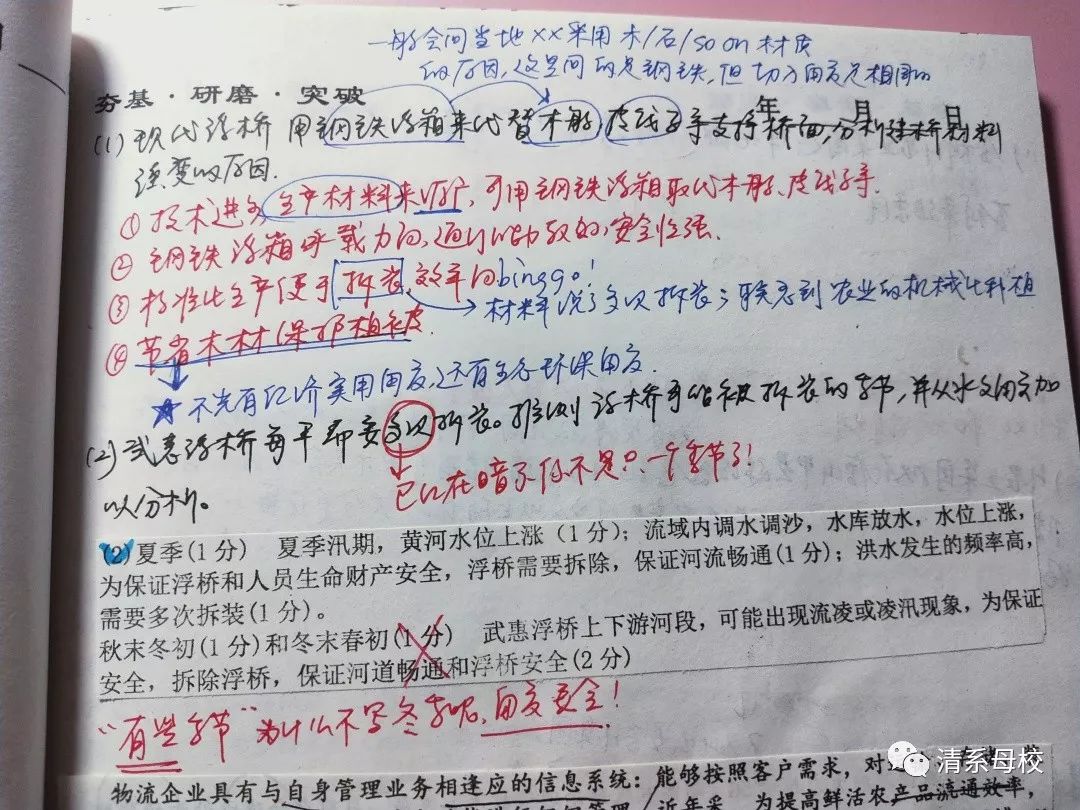 一般会问当地××采用木/石/so on 材质
的原因,这里问的是钢铁,但切入角度是相同的
夯基·研磨·突破
年 月 日
(1)现代浮桥用钢铁浮箱来代替木船、皮筏子等支撑桥面,分析建桥材料
演变的原因.
①技术进步,生产材料来源广,可用钢铁浮箱取代木船、皮筏子等.
②钢铁浮箱承载力高,通行能力较好,安全性强.
③标准化生产便于拆装,效率高binggo!
材料说了多次拆装;联想到农业的机械化种植
④节省木材保护植被.
不光有经济实用角度,还有生态环保角度.
(2)武惠浮桥每年都要多次拆装。推测该桥可能被拆装的季节,并从水文角度加
以分析。
已经在暗示你不是只一个季节了!
(2)夏季(1分) 夏季汛期,黄河水位上涨(1分);流域内调水调沙,水库放水,水位上涨,
为保证浮桥和人员生命财产安全,浮桥需要拆除,保证河流畅通(1分);洪水发生的频率高,
需要多次拆装(1分)。
秋末冬初(1分)和冬末春初(1分) 武惠浮桥上下游河段,可能出现流凌或凌汛现象,为保证
安全,拆除浮桥,保证河道畅通和浮桥安全(2分)
“有些季节”为什么不写冬季呢,角度要全!
清系母校
物流企业具有与自身管理业务相逢应的信息系统:能够按照客户需求,对
近年来 为提高鲜活农产品流通效率,